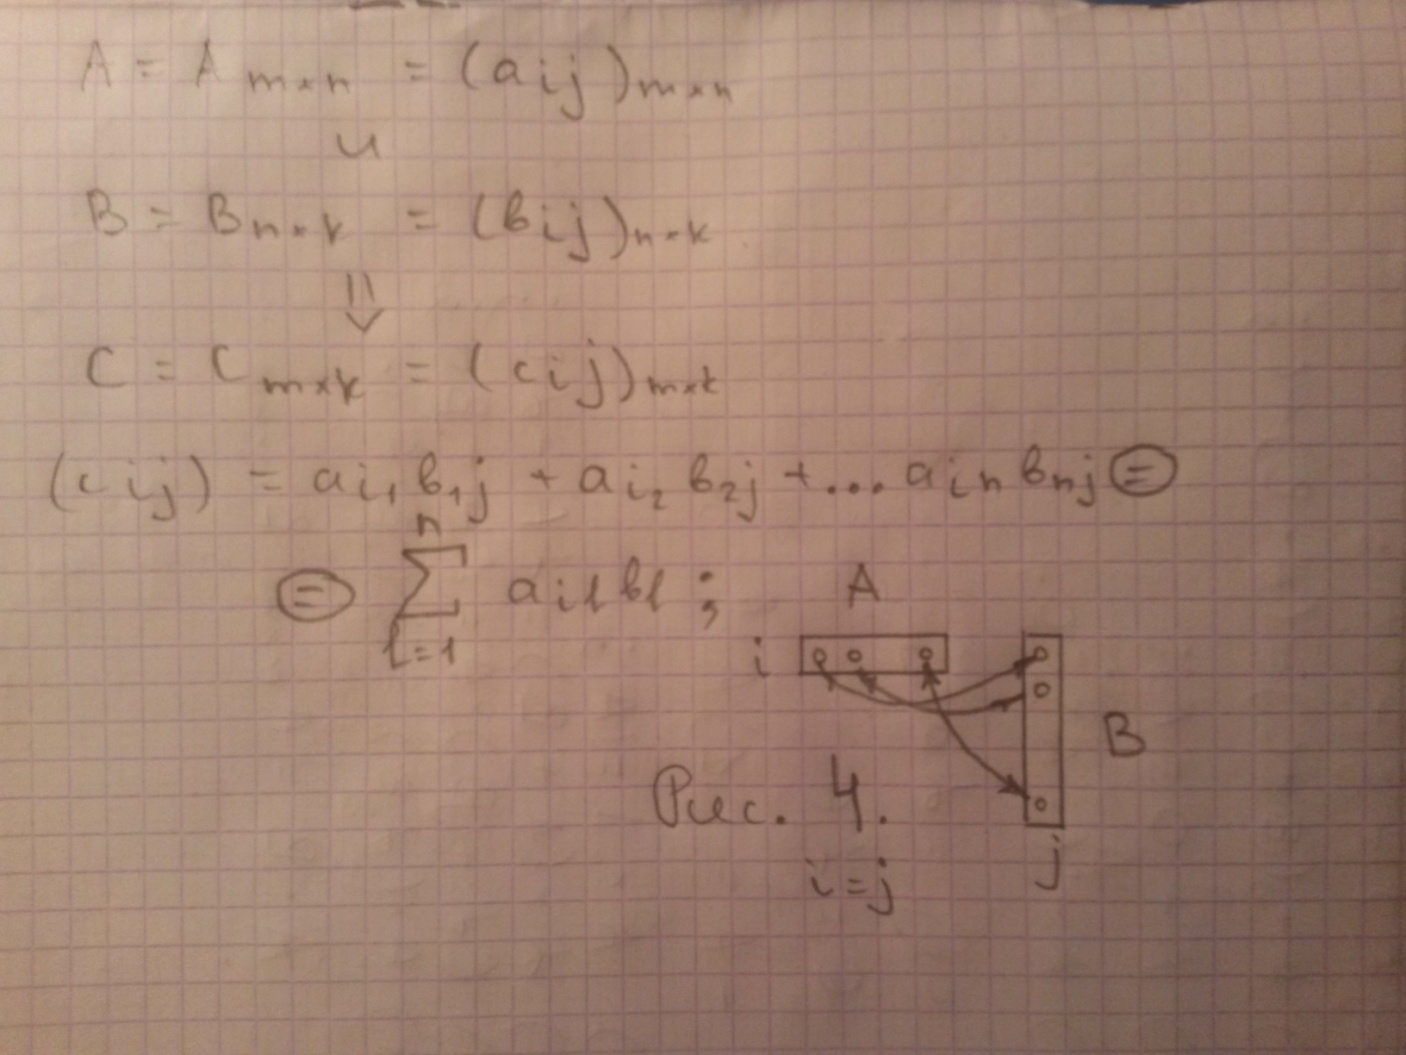 A = A m×n = (aij)m×n
и
B = Bn×k = (bij)n×k
⇓
C = Cm×k = (cij)m×k
(cij) = ai1b1j + ai2b2j + ... ainbnj =
= n ∑ l=1 ailbl ;
A
i
B
Рис. 4.
j
i=j